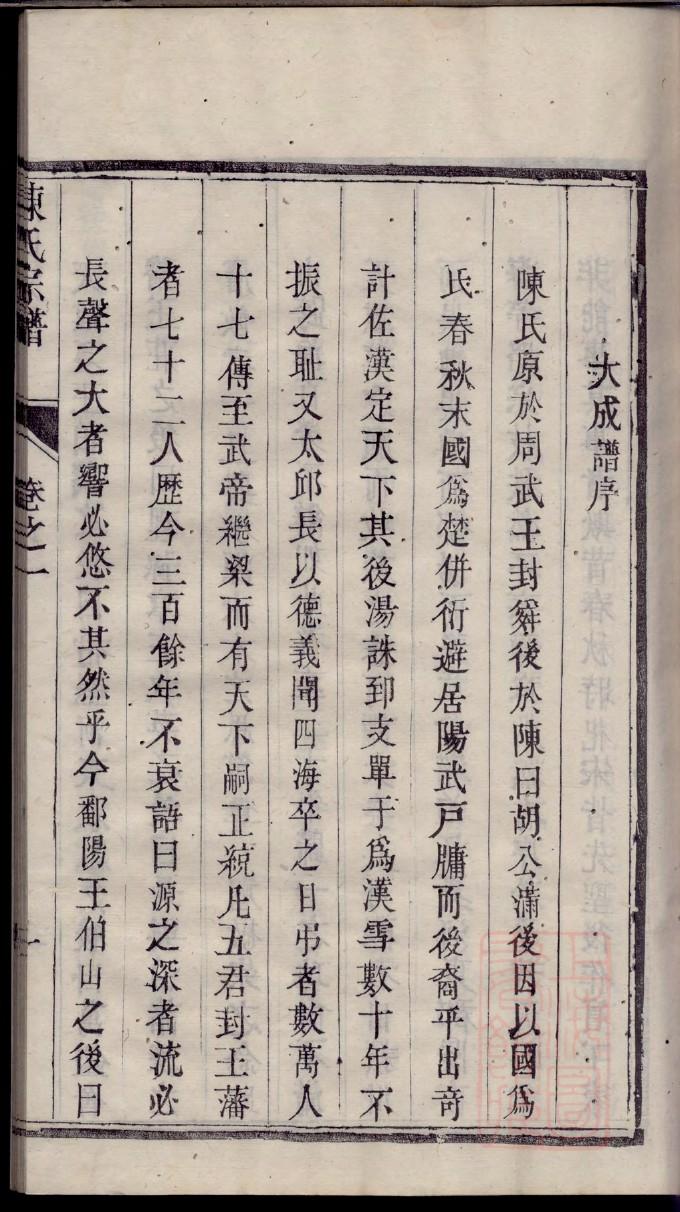 大成譜序
陳氏原於周武王封舜後於陳曰胡公滿後因以國爲
氏春秋末國爲楚併衍避居陽武戸牖而後裔平出奇
計佐漢定天下其後湯誅郅支單于爲漢雪數十年不
振之恥又太邱長以德義聞四海卒之日弔者數萬人
十七傳至武帝繼梁而有天下嗣正統凡五君封王藩
者七十二人歷今三百餘年不衰語曰源之深者流必
長聲之大者響必悠不其然乎今鄱陽王伯山之後曰
陳氏宗譜
卷之一
一